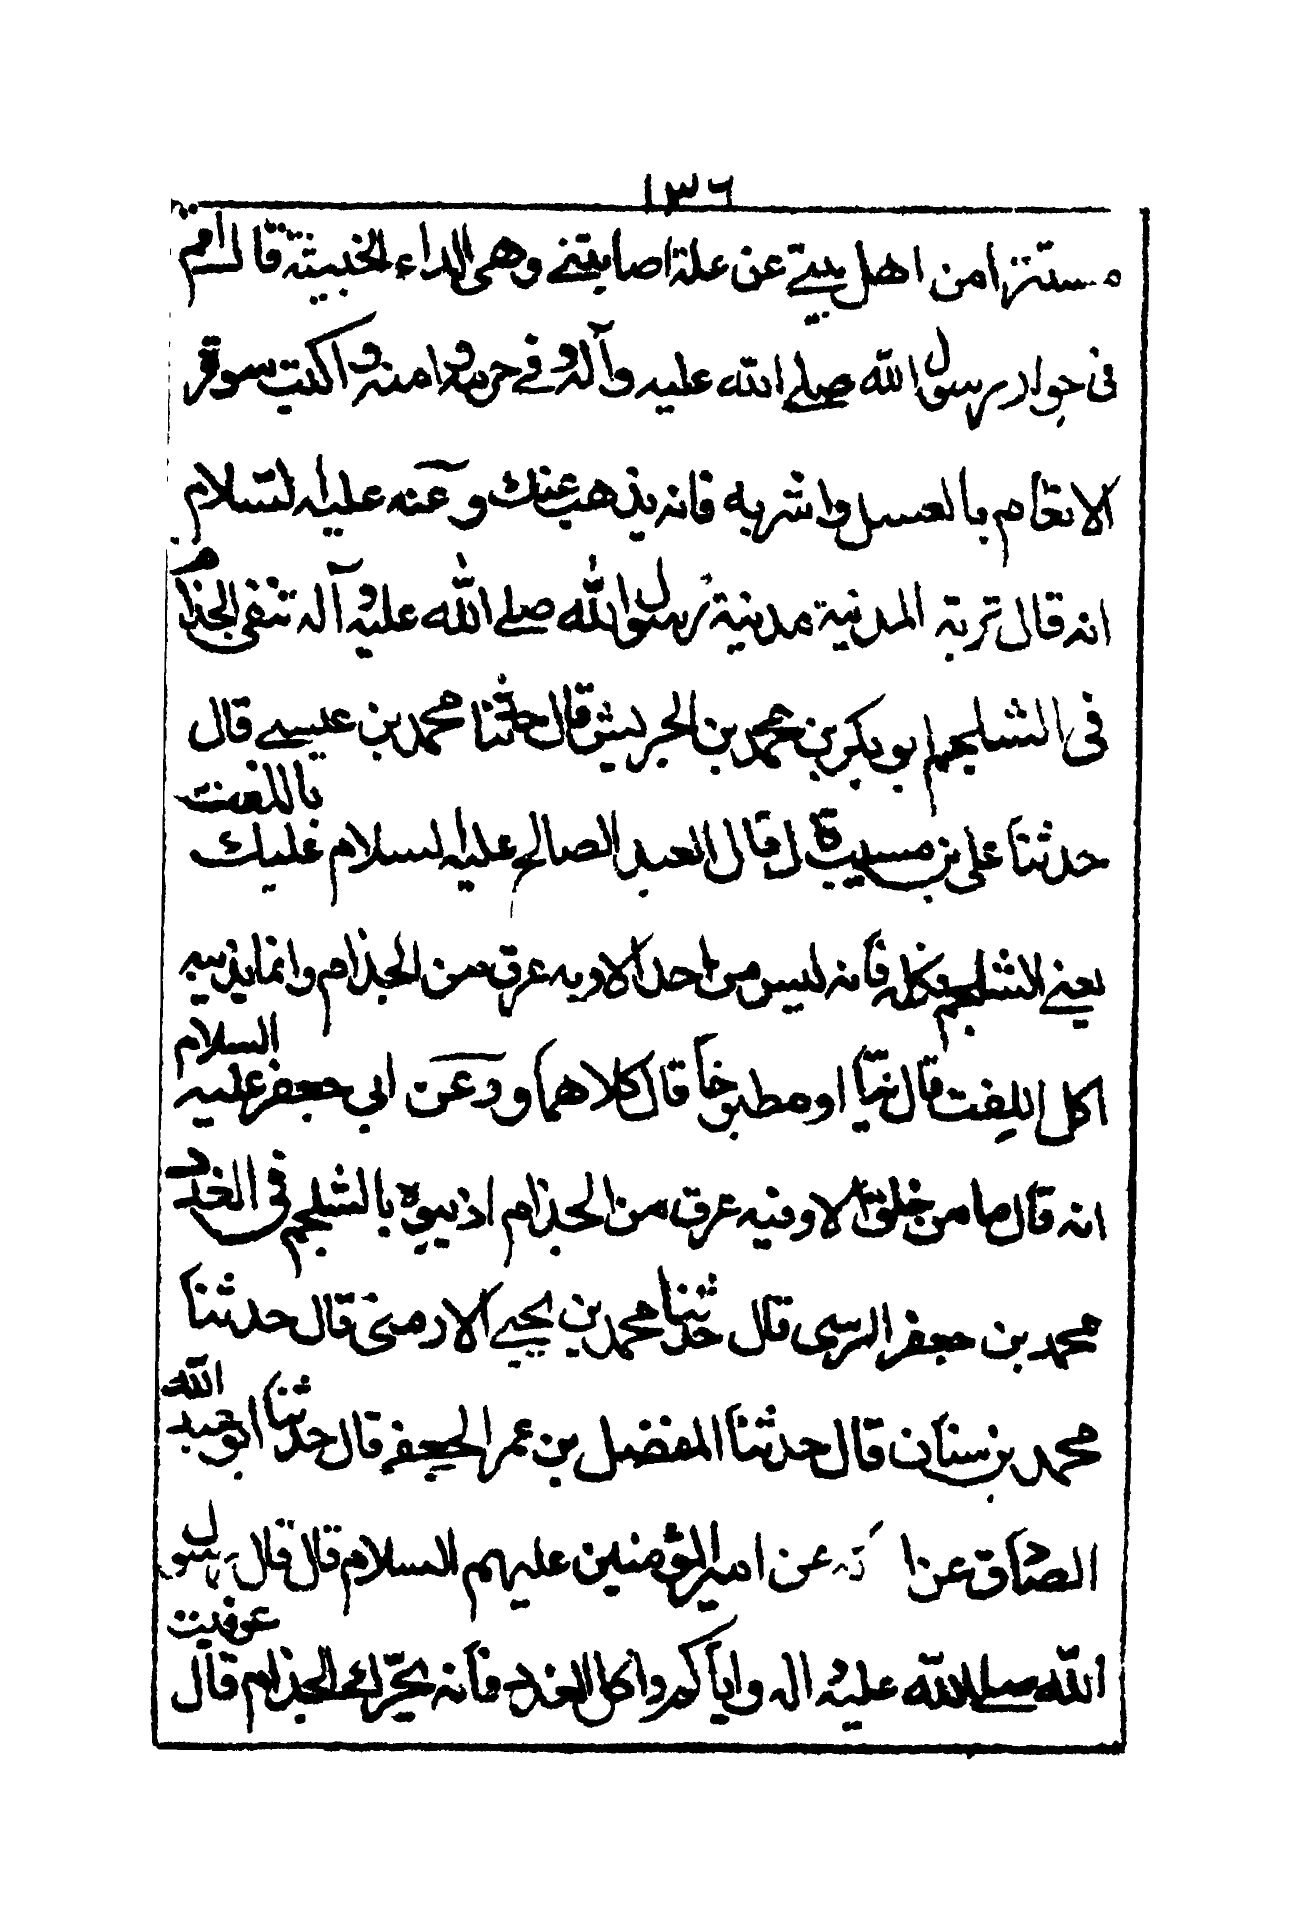 ١٣٦
مستترا من اهل بيتي عن علة اصابتني وهى الداء الخبيثة قال اقم
فى جوار رسول الله صلے الله عليه وآله وفے حرمه وامنه واكتب سورة
الانعام بالعسل واشربه فانه يذهب عنك وعنه عليه السلام
انه قال تربة المدينة مدينة رسول الله صلے الله عليه وآله تنفى الجذام
فى الشلجم ابو بكر بن محمد بن الجريش قال حدثنا محمد بن عيسے قال
حدثنا على بن مسيب قال قال العبد الصالح عليه السلام عليك باللفت
يعنے الشلجم فكله فانه ليس من احد الا وبه عرق من الجذام وانما يذيبه
اكل اللفت قال نيا او مطبوخا قال كلاهما وعن ابى جعفر عليه السلام
انه قال ما من خلق الا وفيه عرق من الجذام اذيبوه بالشلجم فى الغدد
محمد بن جعفر البرسى قال حدثنا محمد بن يحيے الارمنى قال حدثنا
محمد بن سنان قال حدثنا المفضل بن عمر الجعفے قال حدثنا ابو عبد الله
الصادق عن عن امير المؤمنين عليهم السلام قال قال رسول
الله صلے الله عليه واله واياكم واكل الغدد فانه يحرك الجذام قال عوفيت